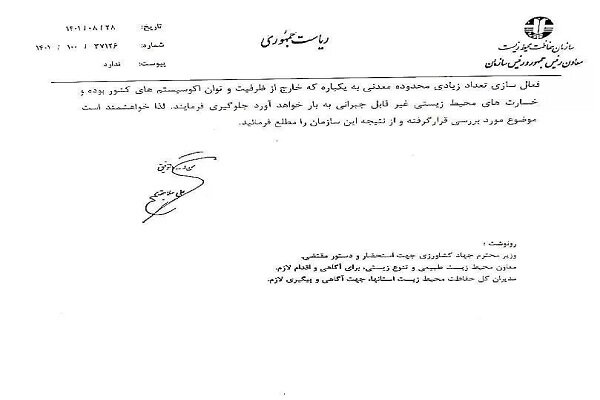 ریاست جمهوری
سازمان حفاظت محیط زیست
معاون رئیس جمهور و رئیس سازمان
تاریخ: ۱۴۰۱/۰۸/۲۸
شماره: ۱۴۰۱ / ۱۰۰ / ۳۷۱۲۶
پیوست: ندارد
فعال سازی تعداد زیادی محدوده معدنی به یکباره که خارج از ظرفیت و توان اکوسیستم های کشور بوده و
خسارت های محیط زیستی غیر قابل جبرانی به بار خواهد آورد جلوگیری فرمایند. لذا خواهشمند است
موضوع مورد بررسی قرارگرفته و از نتیجه این سازمان را مطلع فرمائید.
رونوشت :
وزیر محترم جهاد کشاورزی جهت استحضار و دستور مقتضی.
معاون محیط زیست طبیعی و تنوع زیستی، برای آگاهی و اقدام لازم.
مدیران کل حفاظت محیط زیست استانها، جهت آگاهی و پیگیری لازم.